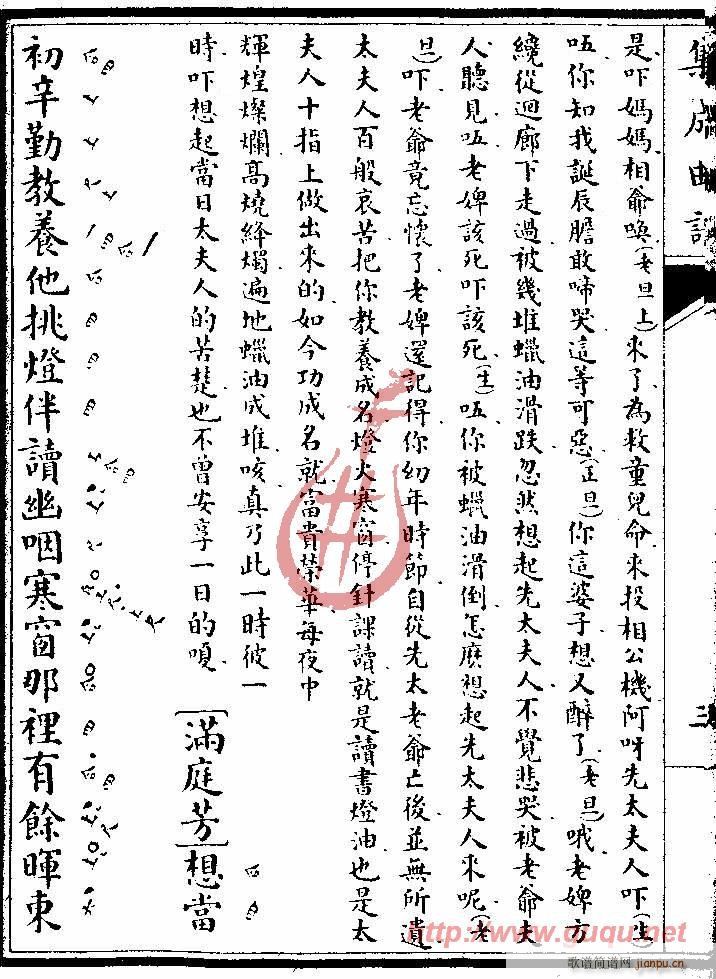 集成曲譜
三
是吓媽媽相爺喚(老旦上)來了為救童兒命來投相公機阿呀先太夫人吓(生)
唔你知我誕辰膽敢啼哭這等可惡(正旦)你這婆子想又醉了(老旦)哦老婢方
纔從迴廊下走過被幾堆蠟油滑跌忽然想起先太夫人不覺悲哭被老爺夫
人聽見唔老婢該死吓該死(生)唔你被蠟油滑倒怎麽想起先太夫人來呢(老
旦)吓老爺竟忘懷了老婢還記得你幼年時節自從先太老爺亡後並無所遺
太夫人百般哀苦把你教養成名燈火寒窗停針課讀就是讀書燈油也是太
夫人十指上做出來的如今功成名就富貴榮華每夜中
輝煌燦爛高燒絳燭遍地蠟油成堆咳真乃此一時彼一
時吓想起當日太夫人的苦楚也不曾安享一日的嗄
[滿庭芳]想當
初辛勤教養他挑燈伴讀幽咽寒窗那裡有餘暉東
http://www.guqu.net
歌谱简谱网
jianpu.cn